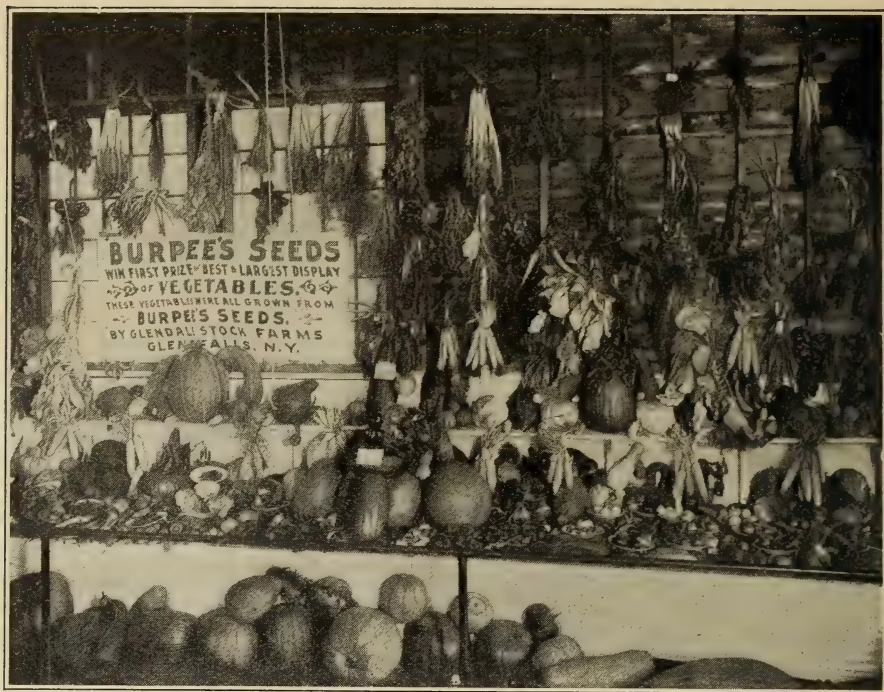 BURPEE'S SEEDS
WIN FIRST PRIZE FOR BEST & LARGEST DISPLAY
OF VEGETABLES.
THESE VEGETABLES WERE ALL GROWN FROM
BURPEE'S SEEDS.
BY GLENDALE STOCK FARMS
GLENS FALLS, N.Y.